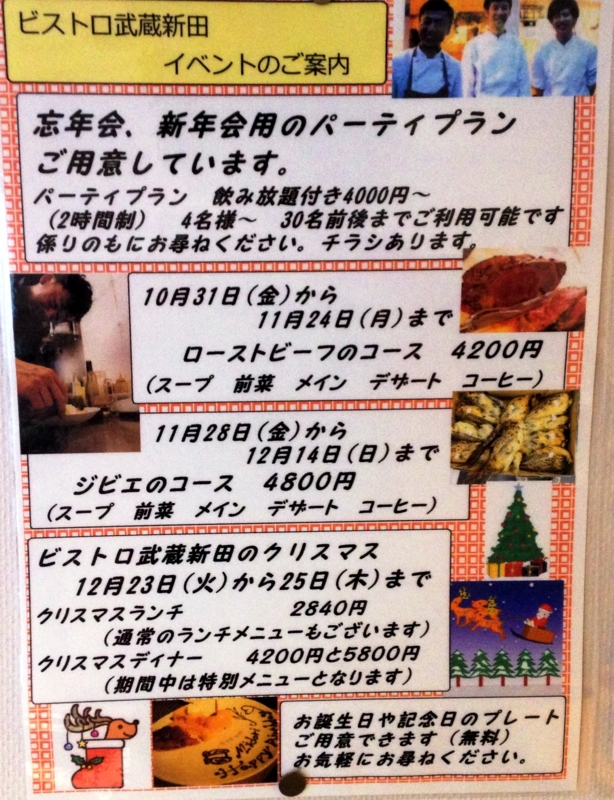 ビストロ武蔵新田
イベントのご案内
忘年会、新年会用のパーティプラン
ご用意しています。
パーティプラン 飲み放題付き4000円～
(2時間制) 4名様～ 30名前後までご利用可能です
係りのもにお尋ねください。チラシあります。
10月31日(金)から
11月24日(月)まで
ローストビーフのコース 4200円
(スープ 前菜 メイン デザート コーヒー)
11月28日(金)から
12月14日(日)まで
ジビエのコース 4800円
(スープ 前菜 メイン デザート コーヒー)
ビストロ武蔵新田のクリスマス
12月23日(火)から25日(木)まで
クリスマスランチ 2840円
(通常のランチメニューもございます)
クリスマスデイナー 4200円と5800円
(期間中は特別メニューとなります)
お誕生日や記念日のプレート
ご用意できます(無料)
お気軽にお尋ねください。